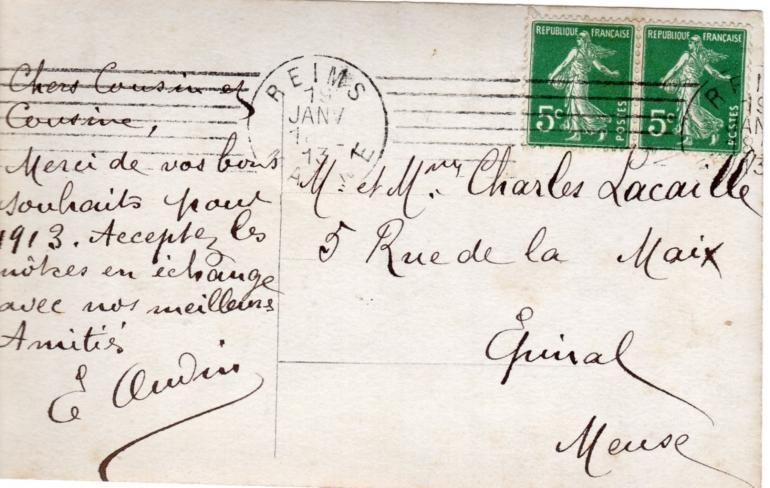 Chers Cousin et
Cousine,
Merci de vos bons
souhaits pour
1913. Acceptez les
nôtres en échange
avec nos meilleurs
Amitiés
E Audin
REIMS
19
JANV
13
RÉPUBLIQUE FRANÇAISE
5c
POSTES
RÉPUBLIQUE FRANÇAISE
5c
POSTES
M. et Mme Charles Lacaille
5 Rue de la Maix
Épinal
Meuse